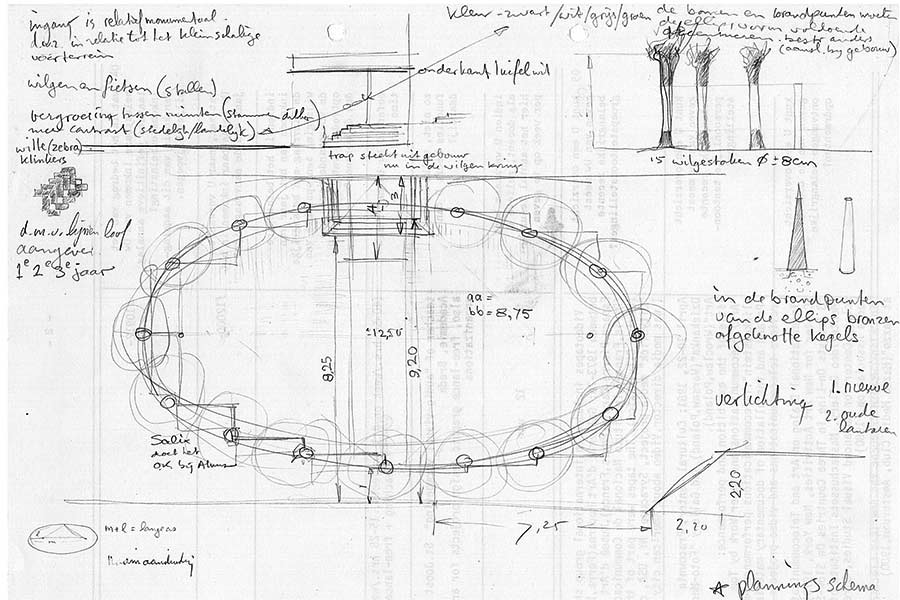 ingang is relatief monumentaal.
d.w.z. in relatie tot het kleinschalige
voorterrein
wilgen en fietsen (stallen)
vergroeiing tussen
meer contrast (stedelijk/landelijk)
witte/(zebra)
klinkers
d.m.v. lijnen loof
aangever
1e 2e 3e jaar
kleur - zwart/wit/grijs/groen
de bomen en brandpunten moeten
de ellipsvorm voldoende
(aansl. bij gebouw)
onderkant luifel wit
trap steekt uit gebouw
nu in de wilgen kring
15 wilgestaken Ø ± 8cm
in de brandpunten
van de ellips bronzen
afgeknotte kegels
verlichting
1. nieuwe
2. oude
lantaren
3
aa =
bb = 8,75
12,50
8,25
9,20
Salix
doet het
ok bij Almus
1
7,25
2,20
2,20
m+l = lange as
l
m
* plannings schema